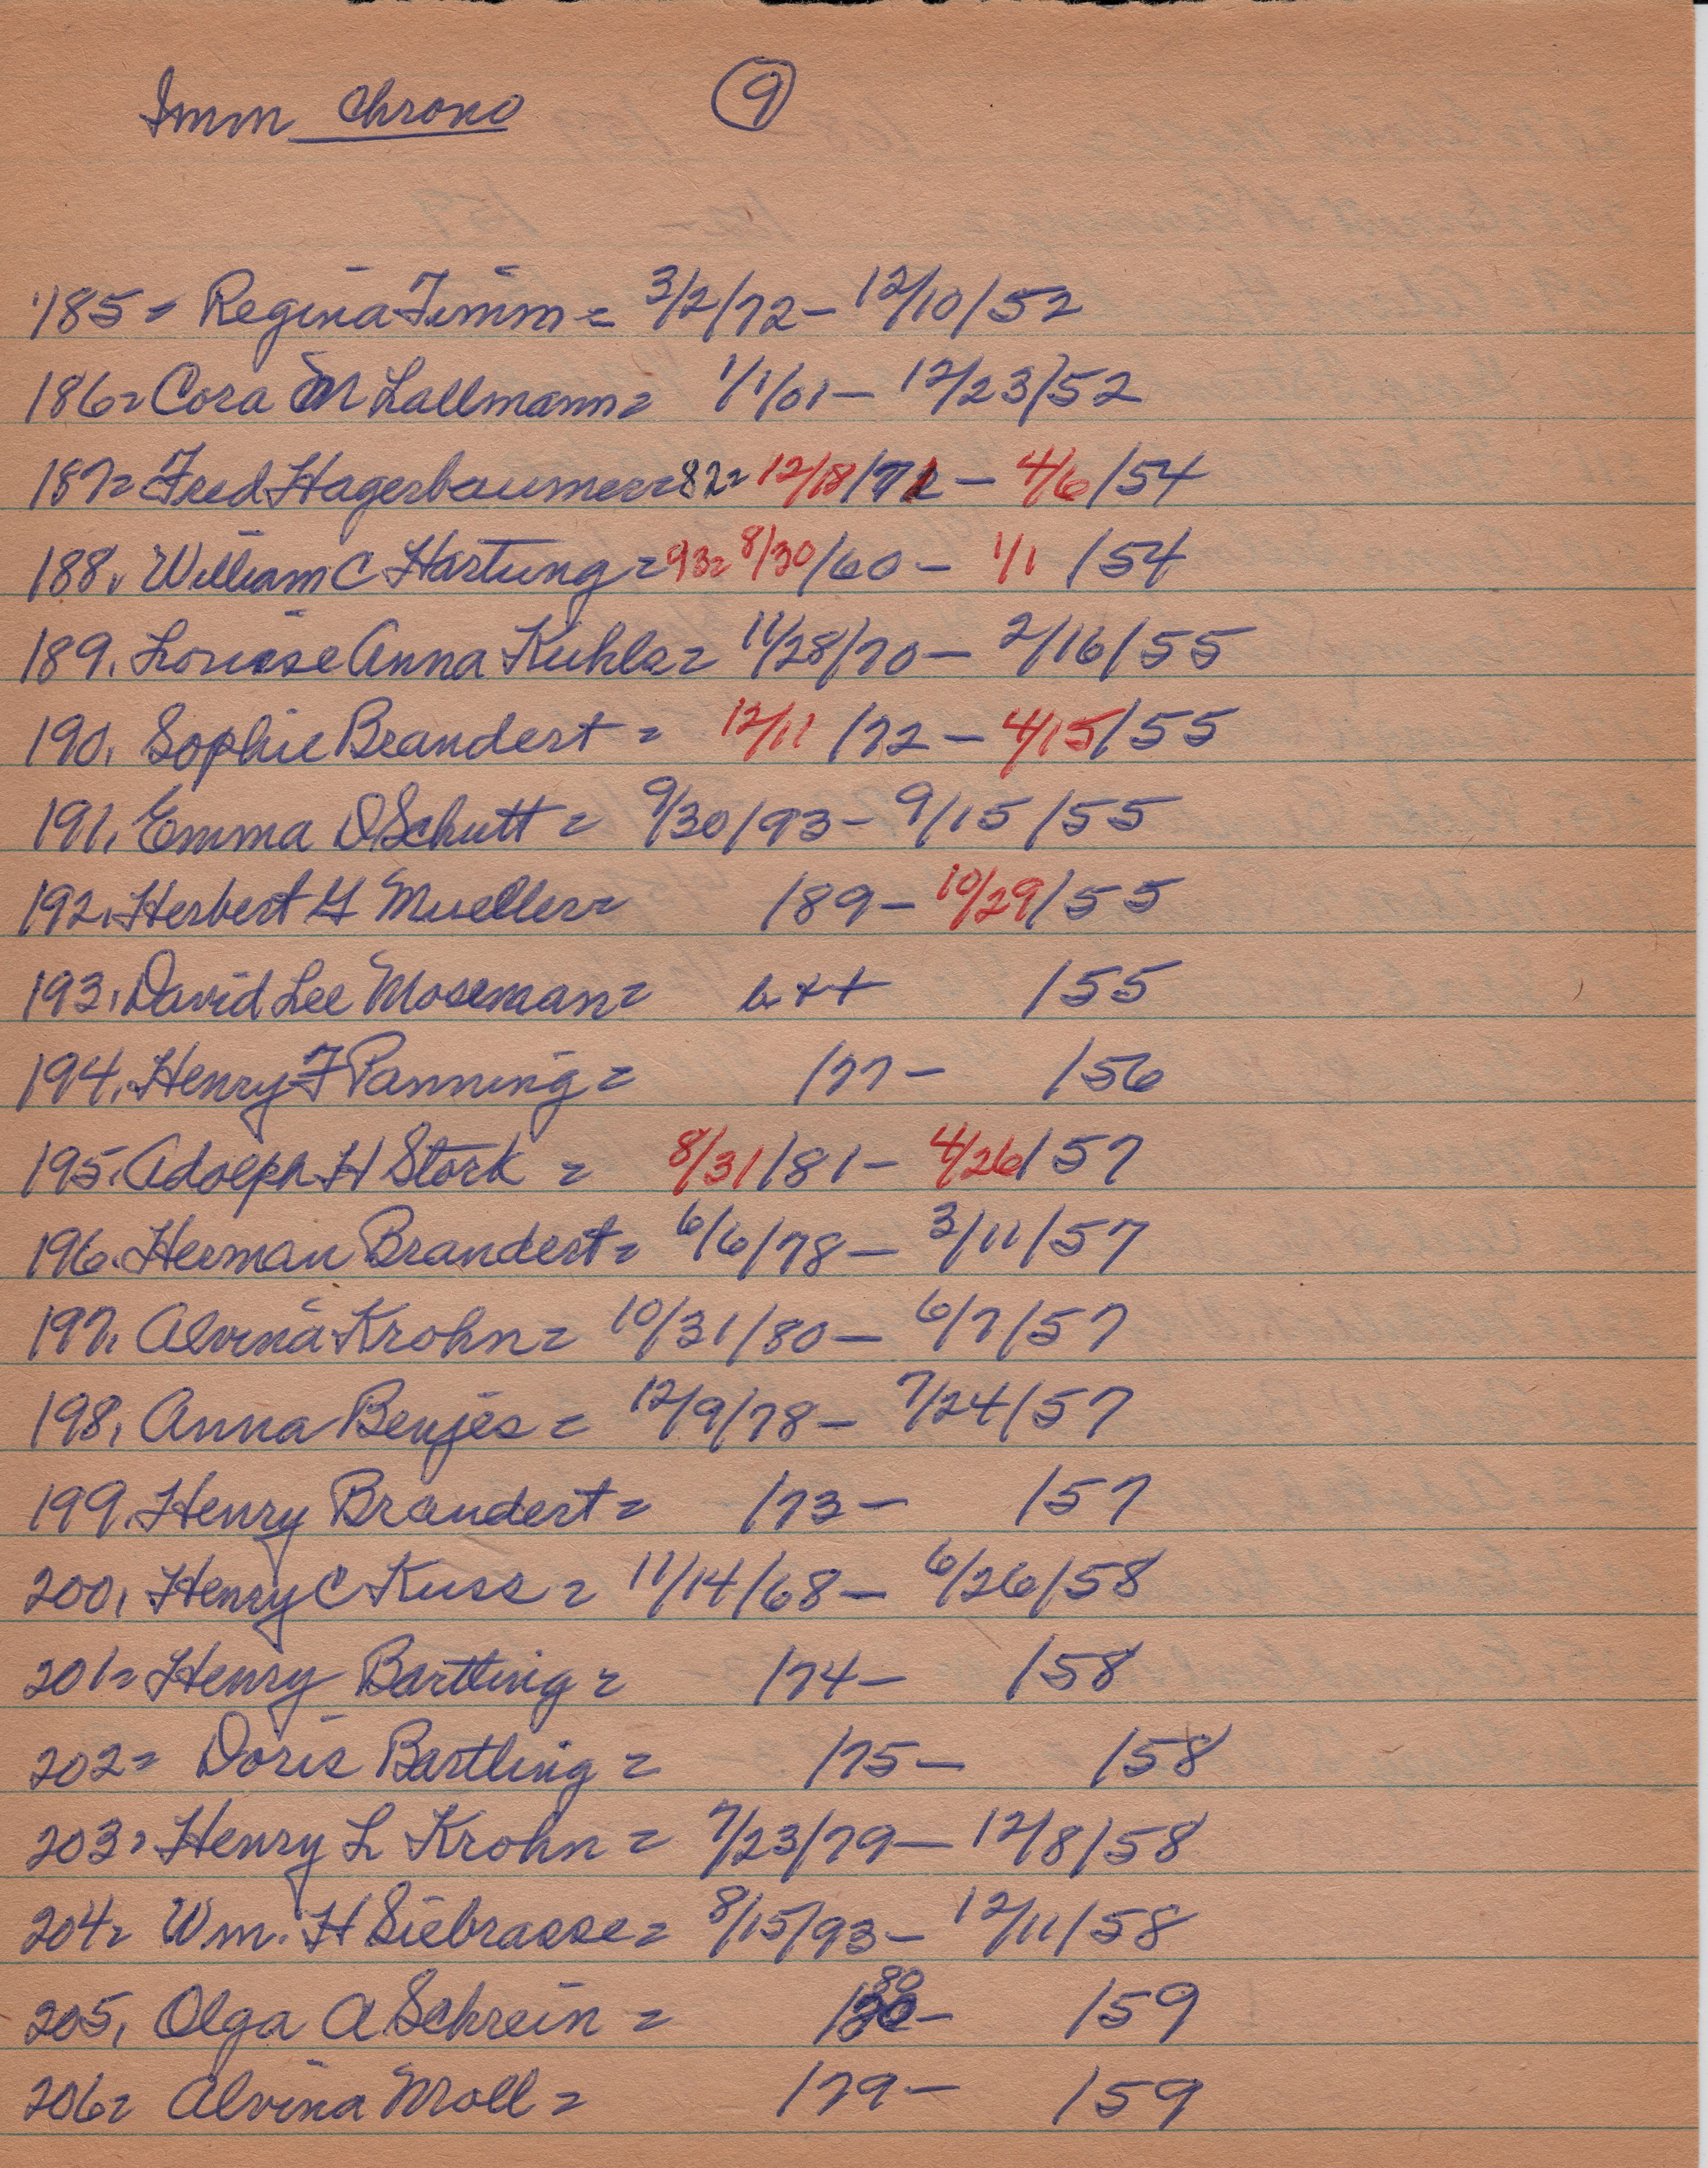 Imm Chrono 9
185= Regina Timm= 3/2/72- 12/10/52
186= Cora M Lallmann= 1/1/01- 12/23/52
187= Fred Hagerbaumer=82= 12/18/71 - 4/6/54
188. William C Hartung=93= 8/30/60- 1/1/54
189. Louise Anna Kuhls= 11/28/70- 2/16/55
190. Sophie Brandert = 12/11/72- 4/15/55
191. Emma D Schutt= 9/30/93- 9/15/55
192. Herbert G Mueller= /89- 10/29/55
193. David Lee Moseman= b++ /55
194. Henry F Panning= /77- /56
195. Adolph H Stork = 8/31/81- 4/26/57
196. Herman Brandert= 6/6/78- 3/11/57
197. Alvina Krohn= 10/31/80- 6/7/57
198. Anna Benjes= 12/9/78- 7/24/57
199. Henry Brandert= /73- /57
200. Henry C Kuss= 11/14/68- 6/26/58
201= Henry Bartling= /74- /58
202= Doris Bartling = /75- /58
203= Henry L Krohn = 7/23/79- 12/8/58
204= Wm. H Siebrasse= 8/15/93- 12/11/58
205. Olga A Schrein = /80- /59
206= Alvina Moll= /79- /59